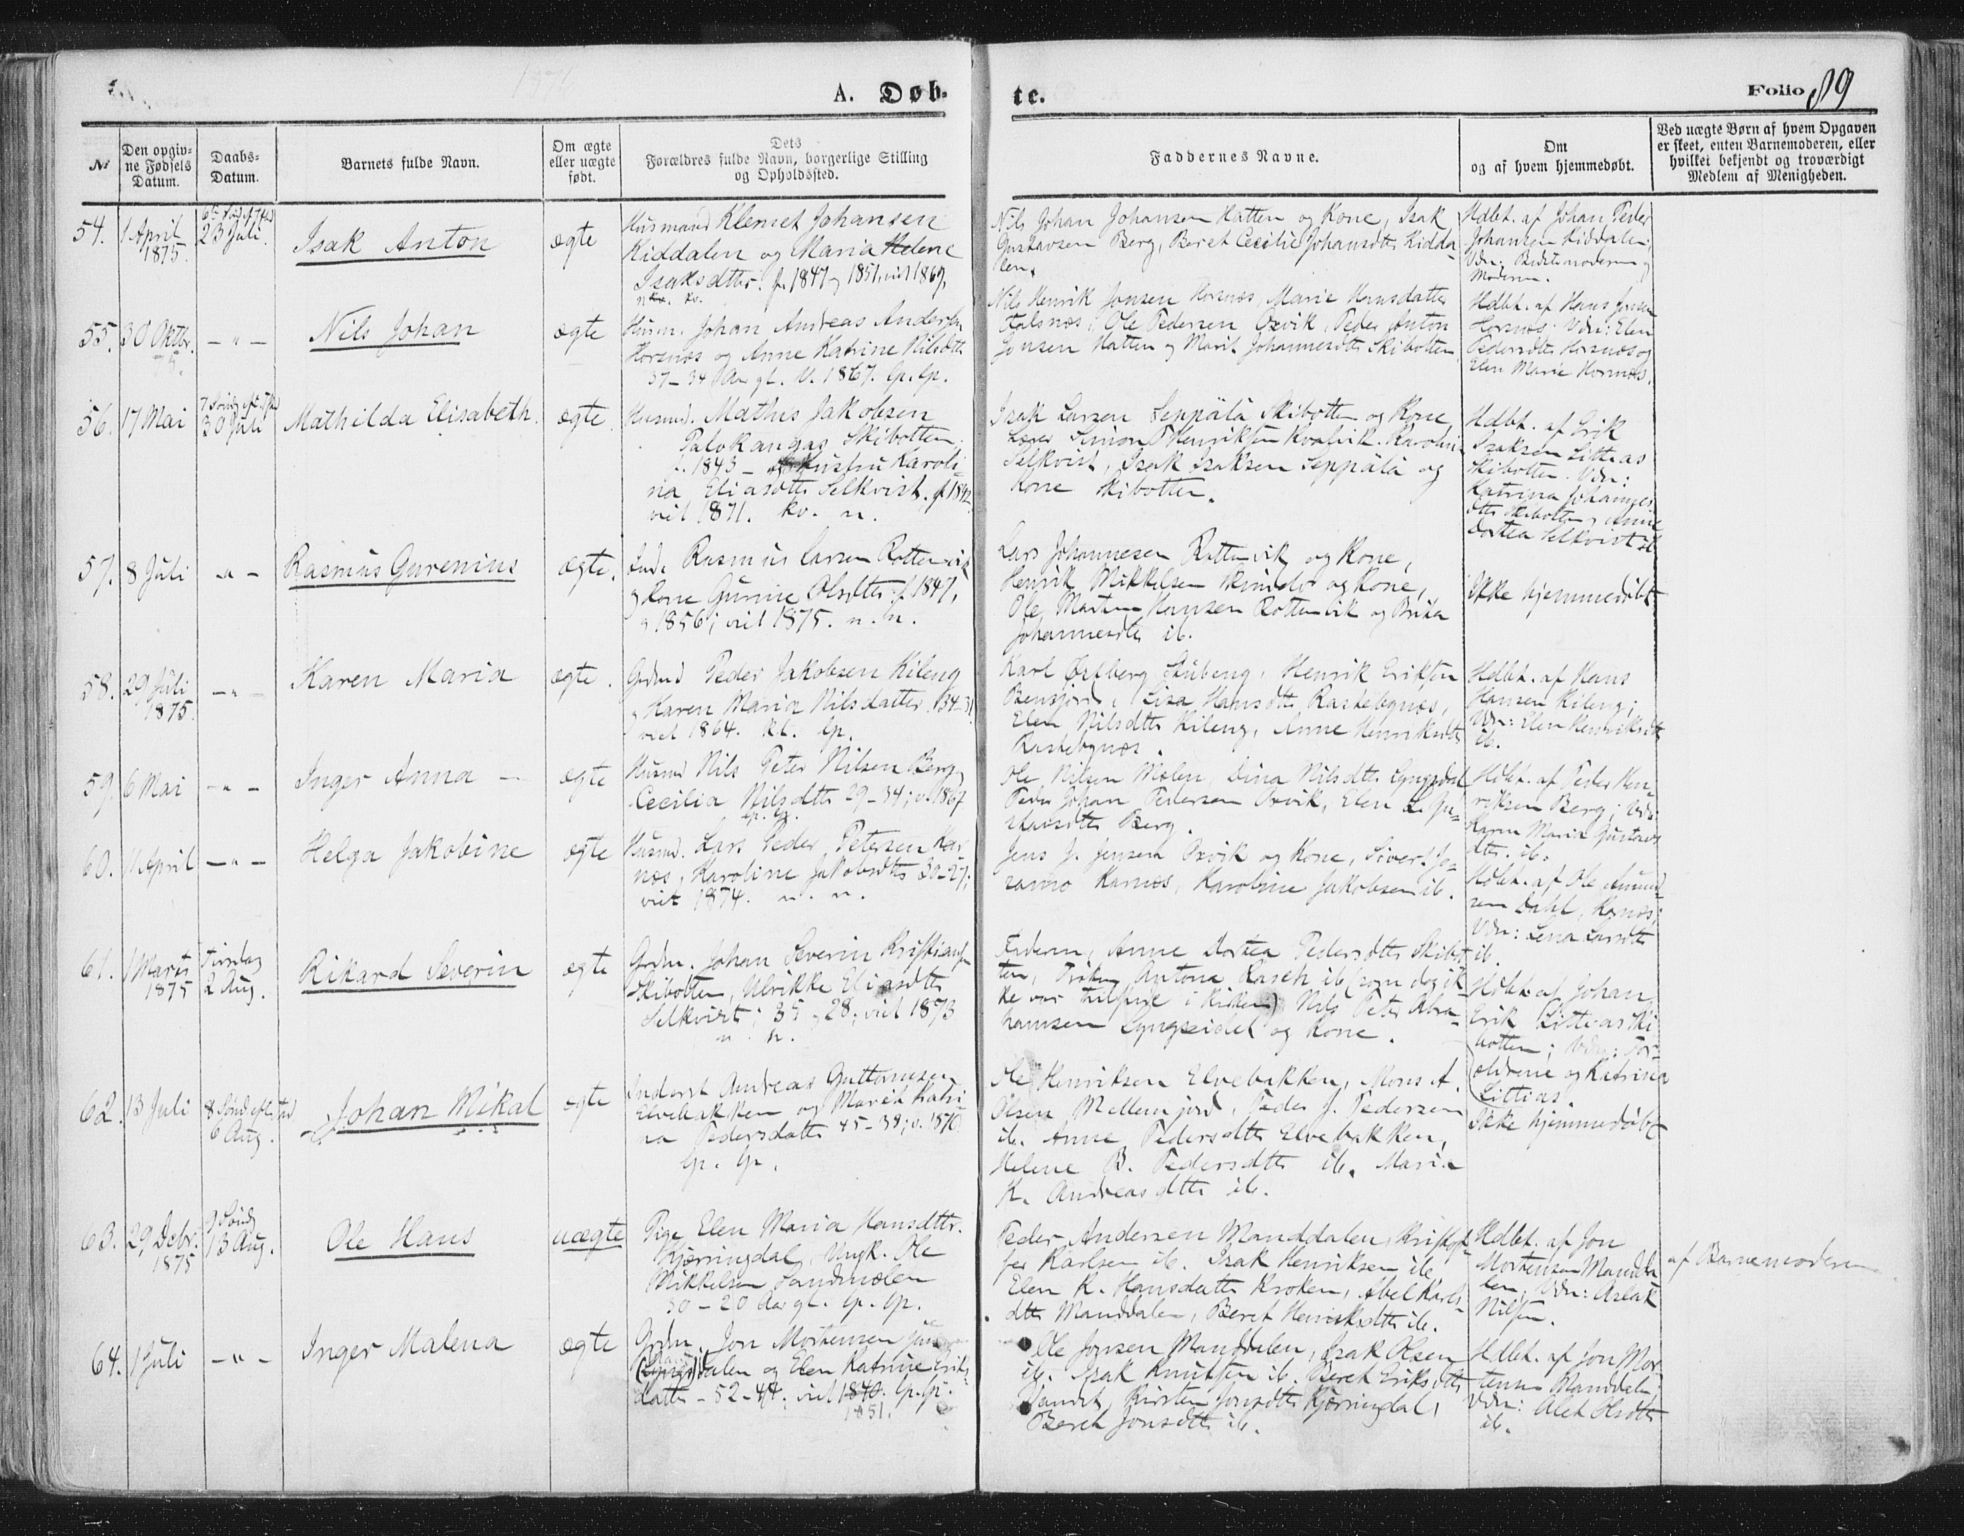 A. Døb-
te.
Folio 89
№
Den opgiv-
ne Fødsels
Datum.
Daabs-
Datum.
Barnets fulde Navn.
Om ægte
eller uægte
født.
Dets
Forældres fulde Navn, borgerlige Stilling
og Opholdssted.
Faddernes Navne.
Om
og af hvem hjemmedøbt.
Ved uægte Børn af hvem Opgaven
er skeet, enten Barnemoderen, eller
hvilket bekjendt og troværdigt
Medlem af Menigheden.
54.
1 April
1875.
23 Juli.
Isak Anton
ægte
Husmand Klemet Johansen
Kiddalen og Maria Helene
Isaksdtter. f. 1847 og 1851, viet 1869,
Nils Johan Johansen Hatten og Kone, Isak
Gustavsen Berg, Beret Cecilie Johansdtr Kidda-
len.
Hdbt. af Johan Peder
Johansen Kiddalen;
Vdn: Bedstemoderen og
Moderen.
55.
30 Oktbr.
75.
— " —
Nils Johan
ægte
Husm. Johan Andreas Andersen
Horsnæs og Anne Katrine Nilsdtr
37–34 Aar gl. V. 1867. lp. lp.
Nils Henrik Jonsen Horsnæs, Marie Hansdatter
Falsnæs, Ole Pedersen Oxvik, Peder Anton
Jonsen Hatten og Marit Johannesdtr Skibotten
Hdbt. af Hans Jonsen
Horsnæs. Vdn: Elen
Pedersdtr Horsnæs og
Elen Marie Horsnæs.
56.
17 Mai
30 Juli
Mathilda Elisabeth.
ægte.
Husmd. Mathis Jakobsen
Palokangas Skibotten.
f. 1843 – Hustru Karoli-
na Eliasdtr Selkvist. f 1842
viet 1871. kv. n.
Isak Larsen Seppälä Skibotten og Kone,
Lærer Simon Henriksen Kvalvik. Karoline
Selkvist, Isak Isaksen Seppälä og
Kone Skibotten.
Hdbt. af Erik
Isaksen Littias
Skibotten. Vdn:
Katrina Johannes
dtr Skibotten, Anne
Dortea Selkvist ib
57.
8 Juli
— " —
Rasmus Gurenius
ægte.
Rasmus Larsen Rottenvik
og Kone Gurine Olsdtr f. 1847,
og 1856; viet 1875. n. n.
Lars Johannesen Rottenvik og Kone,
Henrik Mikkelsen og Kone,
Ole Martin Hansen Rottenvik og Brita
Johannesdtr ib.
Ikke hjemmedøbt
58.
29 Juli
1875.
— " —
Karen Maria
ægte.
Grdmd Peder Jakobsen Kileng
og Karen Maria Nilsdatter. 34–31
viet 1864. kt. lp.
Karl Henrik Eriksen
Bensjord, Lisa Hansdtr Raskebgnæs,
Elen Nilsdtr Kileng, Anne Henriksdtr
Raskebgnæs.
Hdbt. af Hans
Hansen Kileng;
Vdn: Elen Henriksdtr
ib.
59.
6 Mai
— " —
Inger Anna —
ægte
Husmd Nils Peter Nilsen Berg,
Cecilia Nilsdtr 29–34; v. 1867
lp. lp.
Ole Nilsen Molen, Dina Nilsdtr Lyngsdal
Peder Johan Pedersen Oxvik, Elen L. Gu-
stavsdtr Berg.
Hdbt. af Peder Hen-
riksen Berg; Vdn:
Karen Maria Gustavs
dtr. ib.
60.
11 April
— " —
Helga Jakobine
ægte
Husmd. Lars Peder Petersen Kar
næs, Karoline Jakobsdtr 30–27;
viet 1874. n. n.
Jens J. Jensen Oxvik og Kone, Sivert
Karnæs, Karoline Jakobsen ib.
Hdbt. af Ole Amund-
sen Dahl, Karnæs;
Vdn: Lena Larsdtr
ib.
61.
1 Marts
1875
Tirsdag
2 Aug.
Rikard Severin
ægte
Grdm. Johan Severin Kristians
Skibotten, Ulrikke Eliasdtr
Selkvist; 35 – 28; viet 1873
n. n.
Faderen, Anne Dortea Pedersdtr Skibot
ten, Frøken Antone Rasch ib (som dog ik
ke var tilstede i Kirken) Nils Peter Abra-
hamsen Lyngseidet og Kone.
Hdbt. af Johan
Erik Littias Ski
botten; Vdn: For-
ældrene og Katrina
Littias.
62.
13 Juli
6 Aug.
Johan Mikal
ægte
Inderst Andreas Guttormsen
Elvebakken og Marit Katri
na Pedersdatter 45–38; v. 1870
lp. lp.
Ole Henriksen Elvebakken, Mons A.
Olsen Mellemjord, Peder J. Pedersen
ib. Anne Pedersdtr Elvebakken,
Helene B. Pedersdtr ib. Maria
K. Andreasdtr ib.
Ikke hjemmedøbt
63.
29 Debr.
1875
9 Sønd
13 Aug.
Ole Hans
uægte
Pige Elen Maria Hansdtr.
Kjærringdal, Ungk. Ole
Mikkelsen Sandmælen
30–20 Aar gl. lp. lp.
Peder Andersen Manddalen, Kristof
fer Karlsen ib. Isak Henriksen ib
Elen K. Hansdatter Kroken, Abel Karls-
dtr Manddalen, Beret Henriksdtr ib.
Hdbt. af Jon
Mortensen Mandda
len, Vdn: Aslak
Nilsen.
af Barnemoderen
64.
1 Juli
— " —
Inger Malena
ægte
Grdm. Jon Mortensen
dalen og Elen Katrine Eriks
datter – 52–44; viet 1840. lp. lp.
1851.
Ole Jonsen Manddalen, Isak Olsen
ib. Isak Knutsen ib. Beret Eriksdtr
Sandet, Kirsten Jonsdtr Kjærringdal,
Beret Jonsdtr ib.
Hdbt. af Jon Mor
tensen Manddalen
Vdn: Alet Olsdtr
ib.